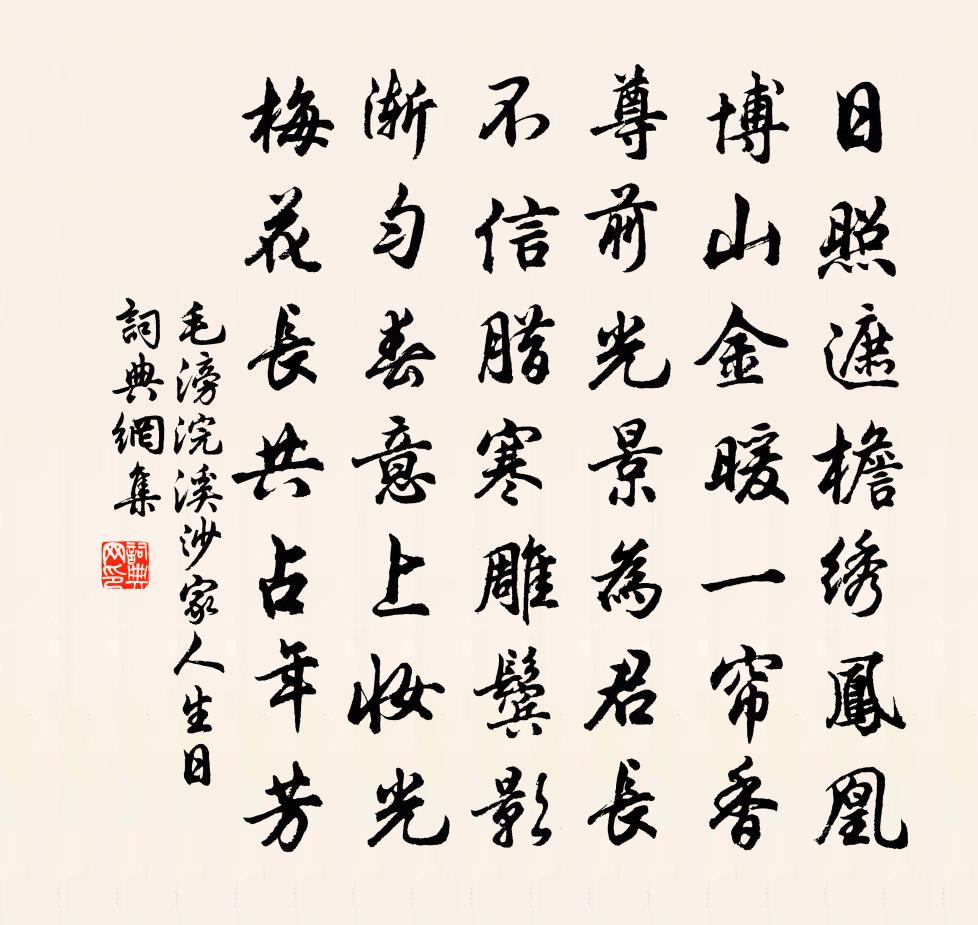 日照遮檐绣鳳凰
博山金暖一帘香
尊前光景為君長
不信腊寒雕鬓影
漸匀春意上妆光
梅花長共占年芳
毛滂浣溪沙家人生日
詞典網集
詞典网印